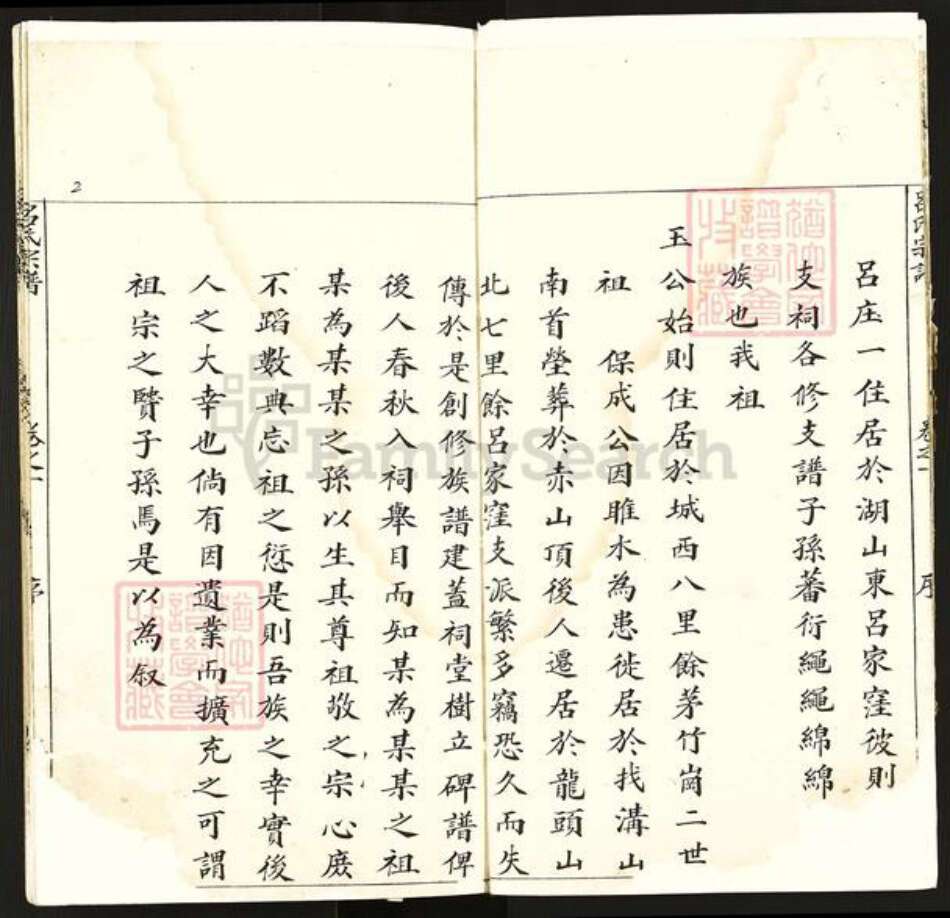 呂庄一住居於湖山東呂家窪彼則
支祠各修支譜子孫蕃衍繩繩綿綿
族也我祖
玉公始則住居於城西八里餘茅竹崗二世
祖 保成公因睢水為患徙居於找溝山
南首塋葬於赤山頂後人遷居於龍頭山
北七里餘呂家窪支派繁多竊恐久而失
傳於是創修族譜建蓋祠堂樹立碑譜俾
後人春秋入祠舉目而知某為某某之祖
某為某某之孫以生其尊祖敬之宗心庶
不蹈數典忘祖之愆是則吾族之幸實後
人之大幸也倘有因遺業而擴充之可謂
祖宗之賢子孫焉是以為叙
呂氏宗譜 卷之一 序
呂氏宗譜 卷之一 序
2
FamilySearch